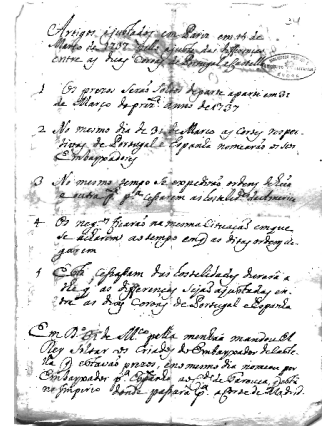 Artigos ajustados em Pariz em 16 de
Março de 1737 sobre ajuste das differenças
entre as duas Coroas de Portugal e Castella
1 Os prezos serão soltos de parte a parte em 31
de Março do prez.te anno de 1737
2 No mesmo dia de 31 de Março as Cortes respe
tivas de Portugal e Espanha nomearão os seos
Embaxadores
3 No mesmo tempo se expedirão ordens de hũa
e outra p.te p.a cessarem as hostelid.es
4 Os neg.os ficarão na mesma situação em que
se acharem ao tempo em q as ditas ordens che
garem
5 Esta cessassam das hostelidades durará a
the q as differenças sejão ajustadas en
tre as duas Coroas de Portugal e Espanha
Em pella menhãa mandou El
Rey soltar os criados do Embaxador de Caste
lla q estavão prezos, e no mesmo dia nomeou por
Embaxador p.a Espanha ao
no Imperio donde pasará p.a a Corte de Madrid.